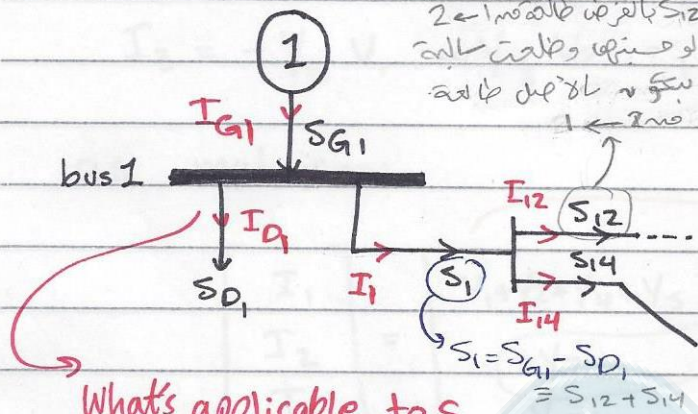 S12 بالفرض طالعة من 1 → 2
لو حسبتها وطلعت سالبة
بتكون بالأصل طالعة
من 2 → 1
1
IG1
SG1
bus 1
ID1
SD1
I1
S1
I12
S12
I14
S14
S1 = SG1 - SD1
≡ S12 + S14
What's applicable to S